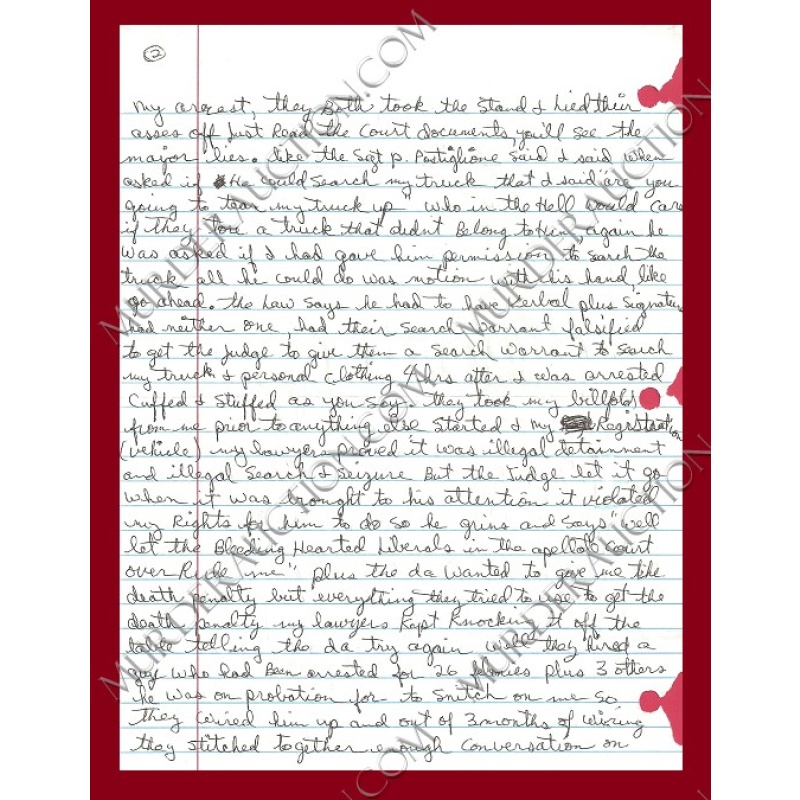 2
my arrest, they Both took the Stand & Lied their
asses off Just Read the Court documents, you'll see the
major lies. like the Sgt p. Postiglione said I said when
asked if He could Search my truck that I said are you
going to tear my truck up" who in the Hell would care
if they tore a truck that didn't Belong to Him again he
was asked if I had gave him permission to search the
truck all he could do was motion with his hand, like
go ahead. the Law says he had to have Verbal plus Signature
had neither one, had their Search warrant falsified
to get the judge to give them a search warrant to search
my truck & personal clothing hrs after I was arrested
Cuffed & Stuffed as you say, they took my billfold
from me prior to anything else Started & my Registration
(vehicle) my lawyers proved it was illegal detainment
and illegal Search & seizure But the Judge let it go
when it was brought to his attention it violated
my Rights for him to do so he grins and Says "well
let the Bleeding Hearted Liberals in the court
over Rule me" plus the da wanted to give me the
death penalty but everything they tried to use to get the
death penalty my lawyers Kept Knocking it off the
table telling the da try again they hired a
guy who had Been arrested for 26 plus 3 others
he was on probation for to Snitch on me so
they wired him up and out of 3 months of wiring
they stitched together enough Conversation on
MURDERAUCTION.COM